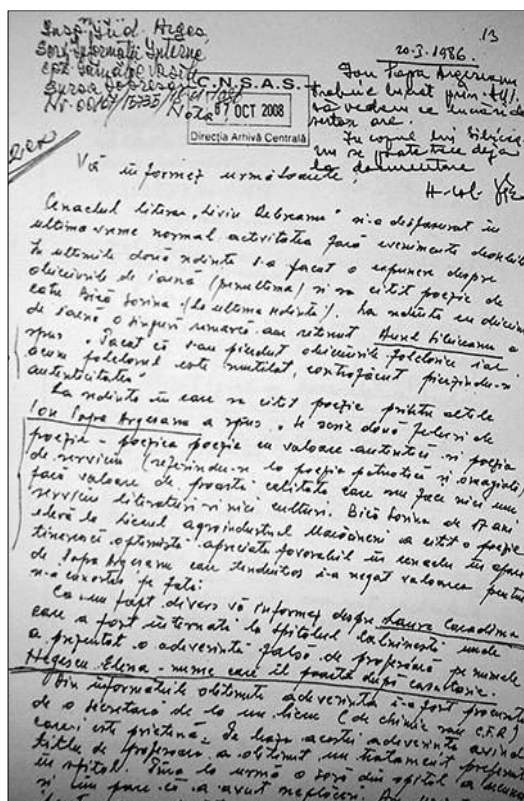 Insp. Jud. Argeș
Serv. Informații Interne
Vasile
Sursa
Nota
C.N.S.A.S.
07 OCT 2008
Direcția Arhivă Centrală
13
20.I.1986.
Ion Popa Argeșeanu
trebuie lucrat prin
să vedem ce
are.
În cazul lui
nu se poate trece deja
la documentare
Vă informez următoarele:
Cenaclul literar "Liviu Rebreanu" și-a desfășurat în
ultima vreme normal activitatea fără evenimente deosebite
În ultimele două ședințe s-a făcut o expunere despre
obiceiurile de iarnă (penultima) și s-a citit poezie de
către Bică Sorina (la ultima ședință). La ședința cu obiceiuri
de iarnă o singură remarcă am reținut Aurel Sibiceanu a
spus "Păcat că s-au pierdut obiceiurile folclorice iar
acum folclorul este mutilat, contrafăcut pierzîndu-și
autenticitatea"
La ședința în care s-a citit poezie printre altele
Ion Popa Argeșeanu a spus "se scrie două feluri de
poezie - poezica poezie cu valoare autentică și poezia
de serviciu (referindu-se la poezia patriotică și omagială)
fără valoare de proastă calitate care nu face nici un
serviciu literaturii și nici culturii. Bică Sorina de 17 ani
elevă la liceul agroindustrial Mărăcineni a citit o poezie
tinerească optimistă apreciată favorabil în cenaclu în afară
de Popa Argeșeanu care tendențios i-a negat valoarea pentru
pe față.
Ca un fapt divers vă informez despre Laura Caradima
care a fost internată la spitalul Călinești unde
a prezentat o adeverință falsă de profesoară pe numele
Negescu Elena - nume care îl poartă după căsătorie.
Din informațiile obținute adeverința i-a fost procurată
de o secretară de la un liceu (de chimie sau C.F.R)
care-i este prietenă. Pe baza acestei adeverințe avînd
titlu de profesoară a obținut un tratament preferențial
în spital. Pînă la urmă o soră din spital a
și îmi pare că a avut neplăceri.